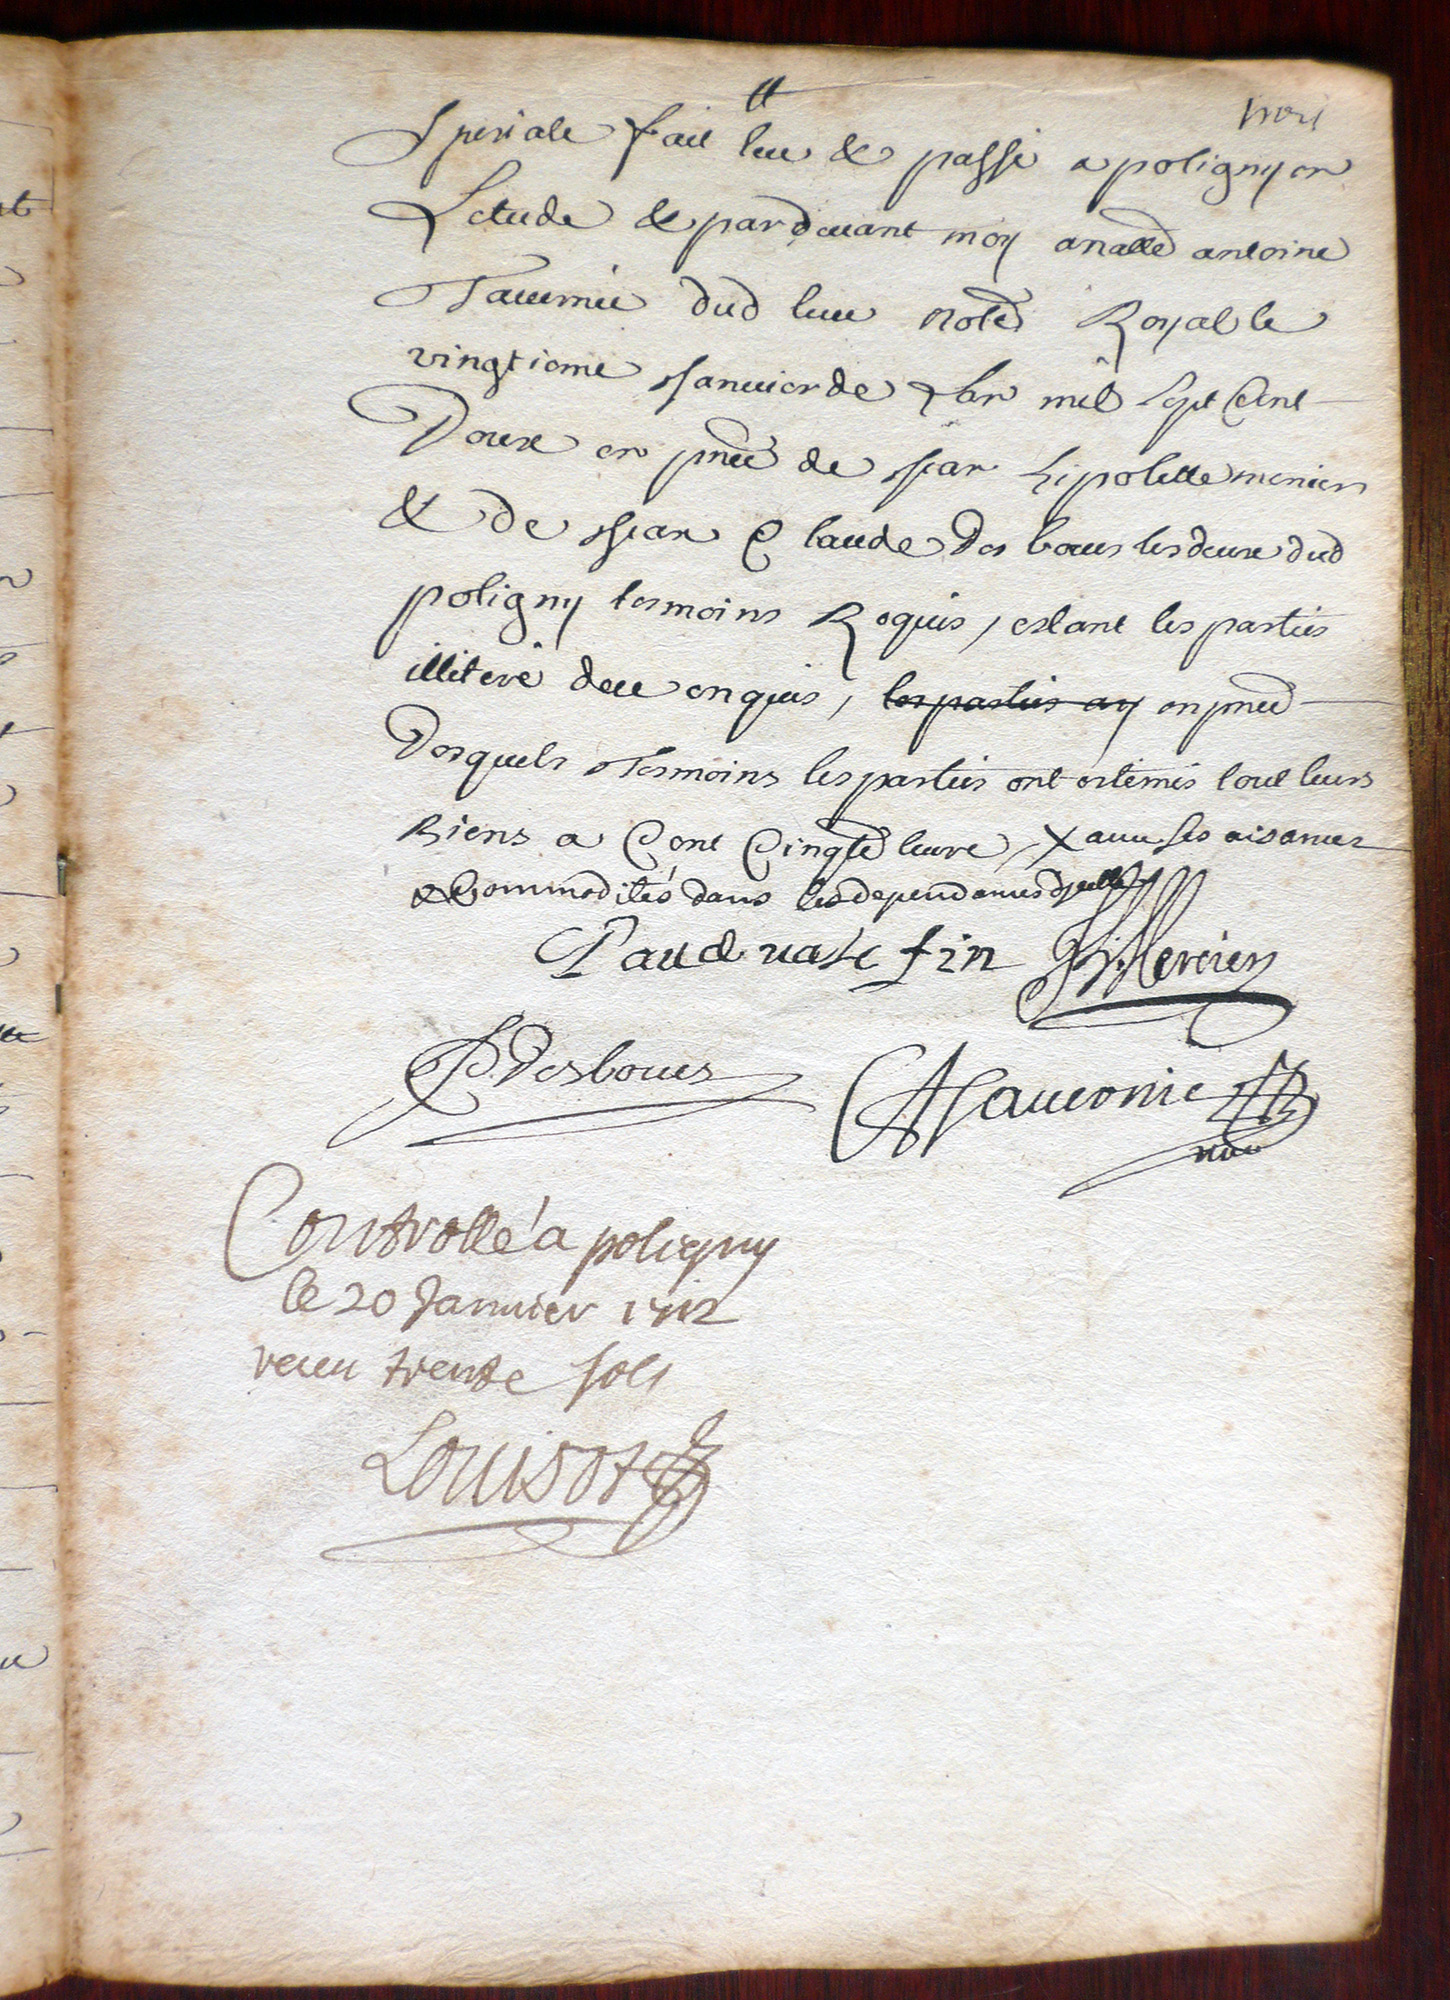 speciale fait leu & passé a poligny en
Letude & pardeuant moy anatle antoine
Tauernié dud lieu note Royal le
vingtieme Januier de Lan mil sept Cent
Douze en pnce de Jean hipolitte mercier
& de Jean Claude Des boues les deux dud
poligny tesmoins Requis, estant les parties
illiteré deue enquis, les parties ay en pnce
Desquels Tesmoins les parties ont estemés tout leurs
Biens a Cent Cinqte liure, X auec ses aisances
& Commodités dans les dependances dicelle
Paud vaste fin JH Mercier
JC Desboues
A Tauernie
Controllé a poligny
le 20 Januier 1712
receu trente sols
Louisot